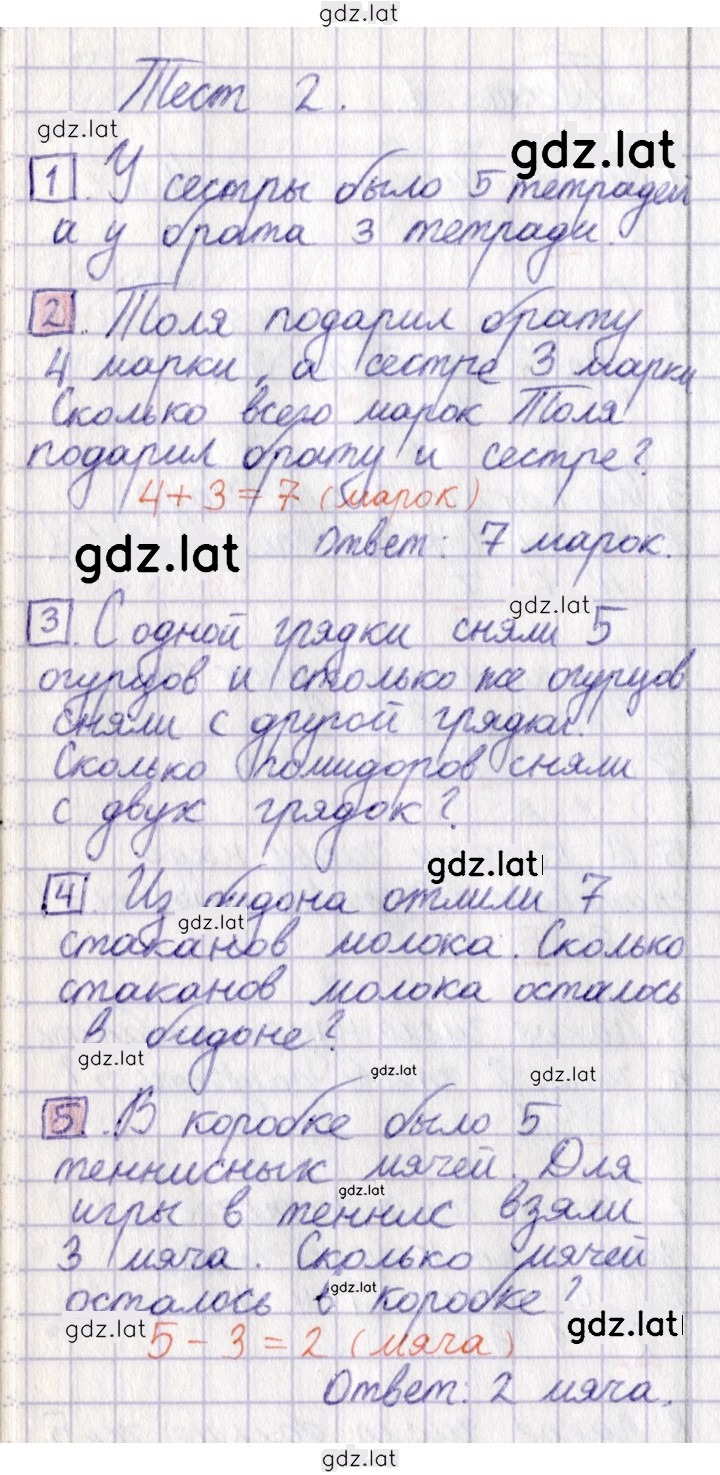 gdz.lat
Тест 2.
gdz.lat
gdz.lat
1. У сестры было 5 тетрадей
а у брата 3 тетради.
2. Толя подарил брату
4 марки, а сестре 3 марки
Сколько всего марок Толя
подарил брату и сестре?
4 + 3 = 7 (марок)
Ответ: 7 марок.
gdz.lat
gdz.lat
3. С одной грядки сняли 5
огурцов и столько же огурцов
сняли с другой грядки.
Сколько помидоров сняли
с двух грядок?
gdz.lat
4. Из бидона отлили 7
gdz.lat
стаканов молока. Сколько
стаканов молока осталось
в бидоне?
gdz.lat
gdz.lat
gdz.lat
5. В коробке было 5
теннисных мячей. Для
gdz.lat
игры в теннис взяли
3 мяча. Сколько мячей
gdz.lat
осталось в коробке?
gdz.lat
gdz.lat
5 - 3 = 2 (мяча)
Ответ: 2 мяча.
gdz.lat